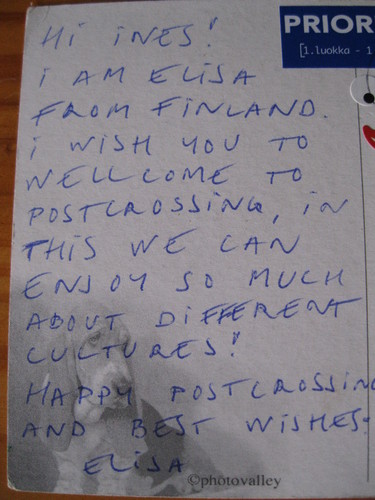 PRIOR
[1.luokka - 1
Hi iNES!
i AM ELiSA
FROM FiNLAND.
i WiSH YOU TO
WELLCOME TO
POSTCROSSiNG, iN
THiS WE CAN
ENJOY SO MUCH
ABOUT DiFFERENT
CULTURES!
HAPPY POSTCROSSiNG
AND BEST WiSHES:
ELiSA
©photovalley